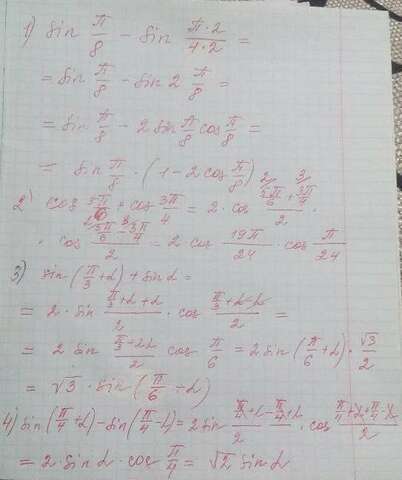 1) sin π/8 - sin π·2/4·2 =
= sin π/8 - sin 2 π/8 =
= sin π/8 - 2 sin π/8 cos π/8 =
= sin π/8 · (1 - 2 cos π/8)
2) cos 5π/6 + cos 3π/4 = 2 · cos (5π/6 + 3π/4)/2 ·
· cos (5π/6 - 3π/4)/2 = 2 · cos 19π/24 · cos π/24
3) sin(π/3 + α) + sin α =
= 2 · sin (π/3 + α + α)/2 · cos (π/3 + α - α)/2 =
= 2 sin (π/3 + 2α)/2 cos π/6 = 2 sin(π/6 + α) · √3/2
= √3 · sin(π/6 + α)
4) sin(π/4 + α) - sin(π/4 - α) = 2 sin (π/4 + α - π/4 + α)/2 · cos (π/4 + α + π/4 - α)/2
= 2 · sin α · cos π/4 = √2 sin α